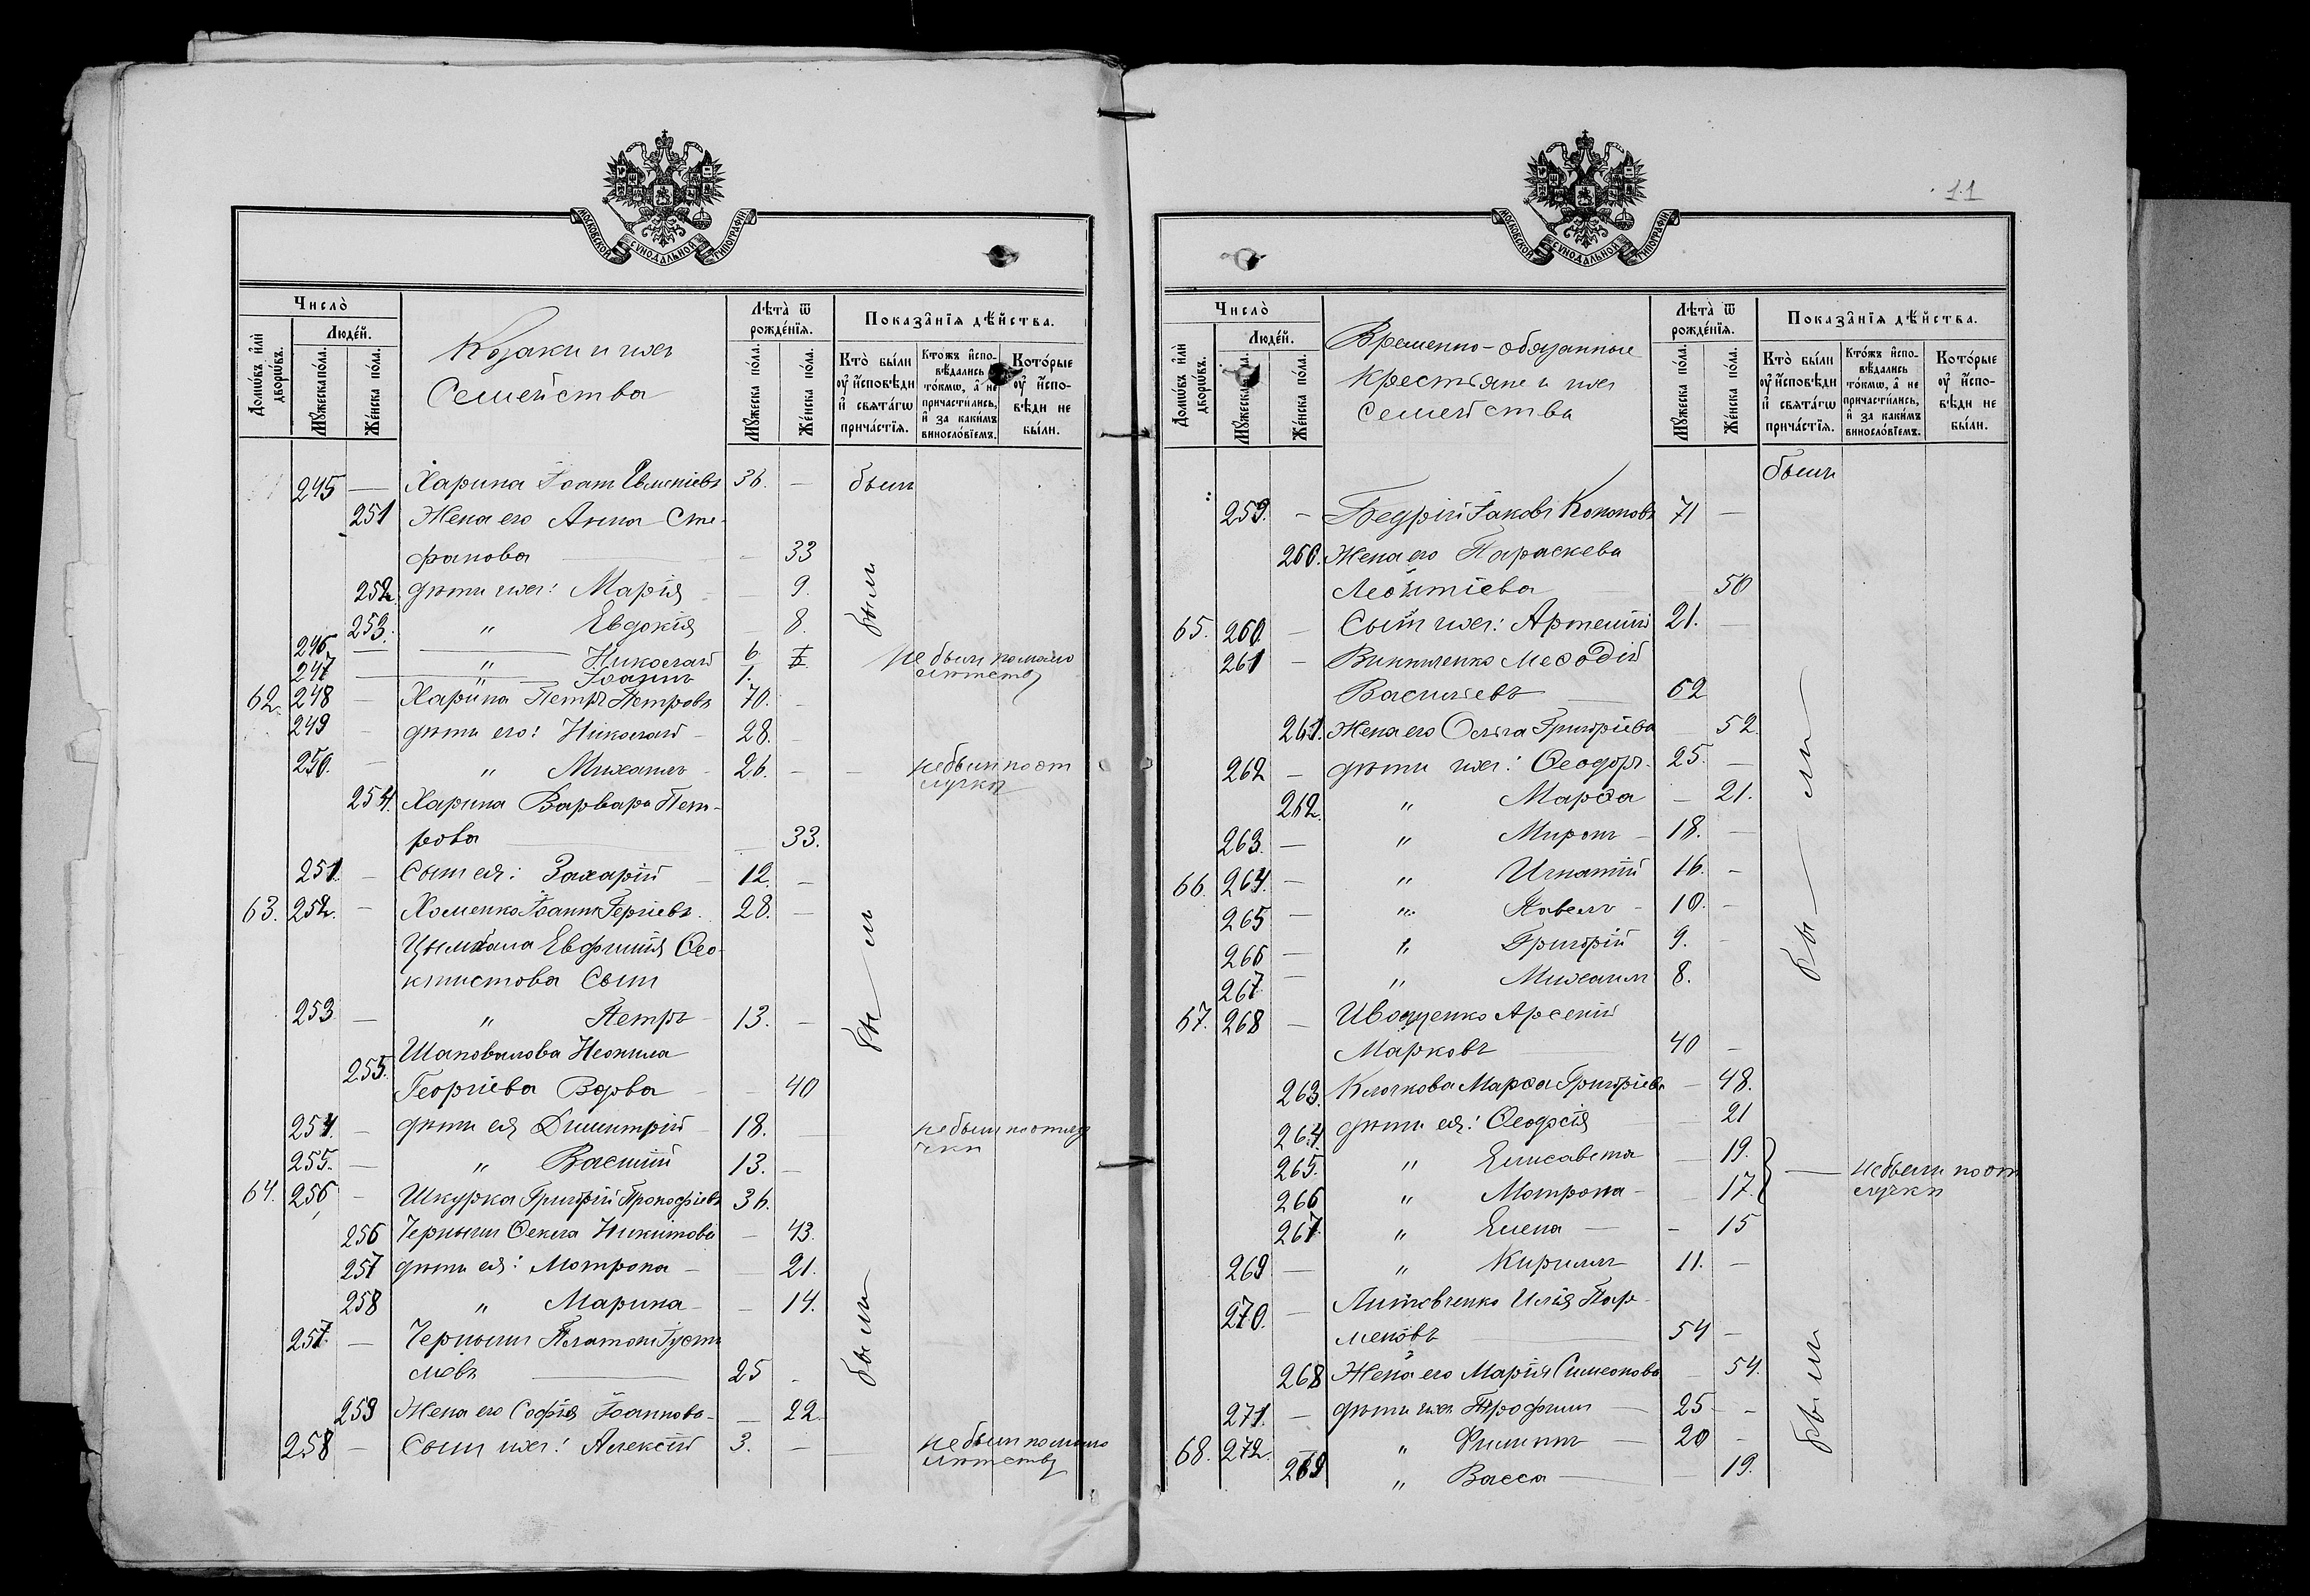 МОСКОВСКОЙ СѴНОДАЛЬНОЙ ТИПОГРАФІИ
Число̀
Люде́й.
Домѡ́въ и҆лѝ дворѡ́въ.
Мꙋ́жеска по́ла.
Же́нска по́ла.
Козаки и ихъ
Семейства
Лѣ́та ѿ рожде́нїѧ.
Мꙋ́жеска по́ла.
Же́нска по́ла.
Показа̑нїѧ дѣ́йства.
Кто̀ бы́ли оу҆ и҆сповѣ́ди и҆ свѧта́гѡ прича́стїѧ.
Кто́жъ и҆спо-вѣ́дались то́кмѡ, а҆ не причасти́лись, и҆ за каки́мъ винословїемъ.
Кото́рые оу҆ и҆спо-вѣ́ди не бы́ли.
245 — Харина Іоанъ Евменіевъ 36. — былъ
251 Жена его Анна Сте-
фанова — 33
252 дѣти ихъ: Марія — 9. были
253. " Евдокія — 8.
246 — " Николай 6. не были по мало
247 — " Іоаннъ 1. лѣтству
62. 248 — Харина Петръ Петровъ 70. -
249 — дѣти его: Николай 28. -
250. — " Михаилъ 26. — не былъ по от
лучки
254. Харина Варвара Пет-
рова — 33.
251. — Сынъ ея: Захарій 12. —
63. 252. — Хоменко Іоаннъ 28. — были
Евфимія Ѳео-
ктистова Сынъ
253 — " Петръ 13. —
Шаповалова Неонила
255. Георгіева Вдова — 40
254. — дѣти ея Димитрій 18. — не былъ по отлу
чки
255. — " Василій 13. —
64. 256 — Шкурка Григорій Прокофіевъ 36.
256 Ѳекла Никитова — 43.
257 дѣти ея: Мотрона — 21.
258 " Марина — 14. были
257. — Платонъ
25 -
259 Жена его Софія Іоаннова — 22.
258 — Сынъ ихъ: Алексій 3. — не былъ по мало
лѣтству
11
МОСКОВСКОЙ СѴНОДАЛЬНОЙ ТИПОГРАФІИ
Число̀
Люде́й.
Домѡ́въ и҆лѝ дворѡ́въ.
Мꙋ́жеска по́ла.
Же́нска по́ла.
Временно-обязанные
крестьяне и ихъ
семейства
Лѣ́та ѿ рожде́нїѧ.
Мꙋ́жеска по́ла.
Же́нска по́ла.
Показа̑нїѧ дѣ́йства.
Кто̀ бы́ли оу҆ и҆сповѣ́ди и҆ свѧта́гѡ прича́стїѧ.
Кто́жъ и҆спо-вѣ́дались то́кмѡ, а҆ не причасти́лись, и҆ за каки́мъ винословїемъ.
Кото́рые оу҆ и҆спо-вѣ́ди не бы́ли.
были
259. — Бедрій Іаковъ Кононовъ 71 —
260. Жена его Параскева
Леонтіева 50
65. 260. — Сынъ ихъ: Артемій 21. —
261 — Меѳодій
Васильевъ 62
261. Жена его Ольга Григоріева — 52.
262 — дѣти ихъ: Ѳеодоръ 25. —
262. " Марѳа — 21.
263. — " Миронъ 18. —
66. 264. — " Игнатій 16. - были
265 — " Павелъ 10. -
266 — " Григорій 9. -
267 — " Михаилъ 8.
67. 268 — Иващенко Арсеній
Марковъ 40 —
263. Клочкова Марѳа Григоріева — 48.
264 дѣти ея: Ѳеодосія 21
265. " Елисавета — 19. не были по от
266 " Мотрона — 17. лучки
267. " Елена — 15
269 — " Кириллъ 11. —
270. — Литовченко Илія Пар-
меновъ 54 —
268 Жена его Марія Симеонова — 54. были
271. — дѣти ихъ Трофимъ 25 -
68. 272. — " Филиппъ 20 -
269 " Васса — 19.